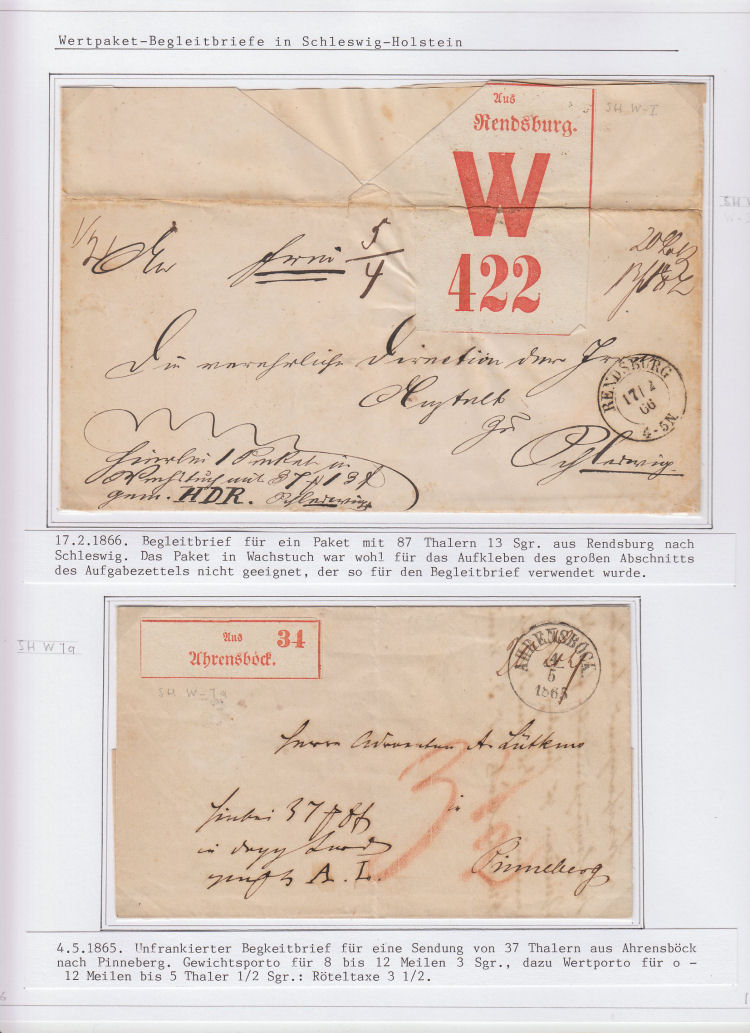 Wertpaket-Begleitbriefe in Schleswig-Holstein
Aus
Rendsburg.
SH W-I
W
422
frei 5/4
Die verehrliche Direction der Irren
Anstalt
zu
Schleswig
RENDSBURG
17 2
66
4-5N.
hierbei 1 Packet in
Wachstuch mit
gem. HDR. Schleswig
17.2.1866. Begleitbrief für ein Paket mit 87 Thalern 13 Sgr. aus Rendsburg nach
Schleswig. Das Paket in Wachstuch war wohl für das Aufkleben des großen Abschnitts
des Aufgabezettels nicht geeignet, der so für den Begleitbrief verwendet wurde.
SH W 7a
Aus 34
Ahrensböck.
SH W-7a
AHRENSBÖCK.
4
5
1865
Herrn Advocaten A. Lütkens
3 1/2
in
Pinneberg
hiebei 37
in
A. L.
4.5.1865. Unfrankierter Begkeitbrief für eine Sendung von 37 Thalern aus Ahrensböck
nach Pinneberg. Gewichtsporto für 8 bis 12 Meilen 3 Sgr., dazu Wertporto für o -
12 Meilen bis 5 Thaler 1/2 Sgr.: Röteltaxe 3 1/2.